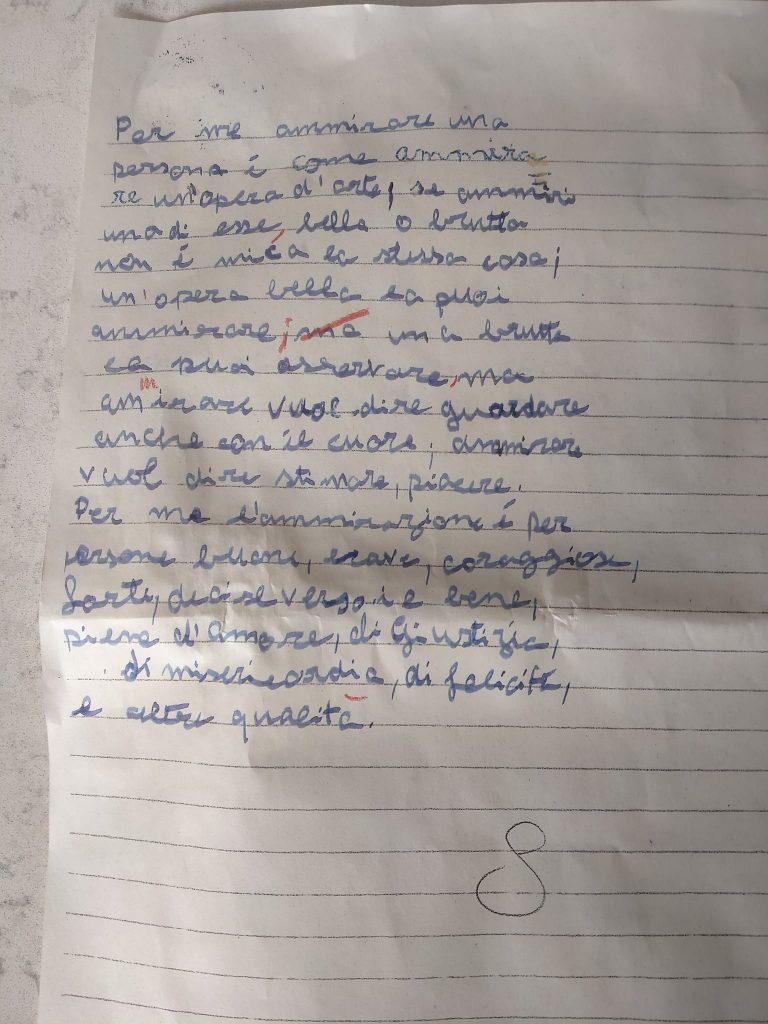 Per me ammirare una
persona é come ammira
re un'opera d'arte, se ammiri
una di esse, bella o brutta
non é mica la stessa cosa;
un'opera bella la puoi
ammirare; ma una brutta
la puoi osservare, ma
ammirare vuol dire guardare
anche con il cuore; ammirare
vuol dire stimare, piacere.
Per me l'ammirazione é per
persone buone, brave, coraggiose,
forti, decise verso il bene,
piene d'Amore, di Giustizia,
di misericordia, di felicità,
e altre qualità.
8